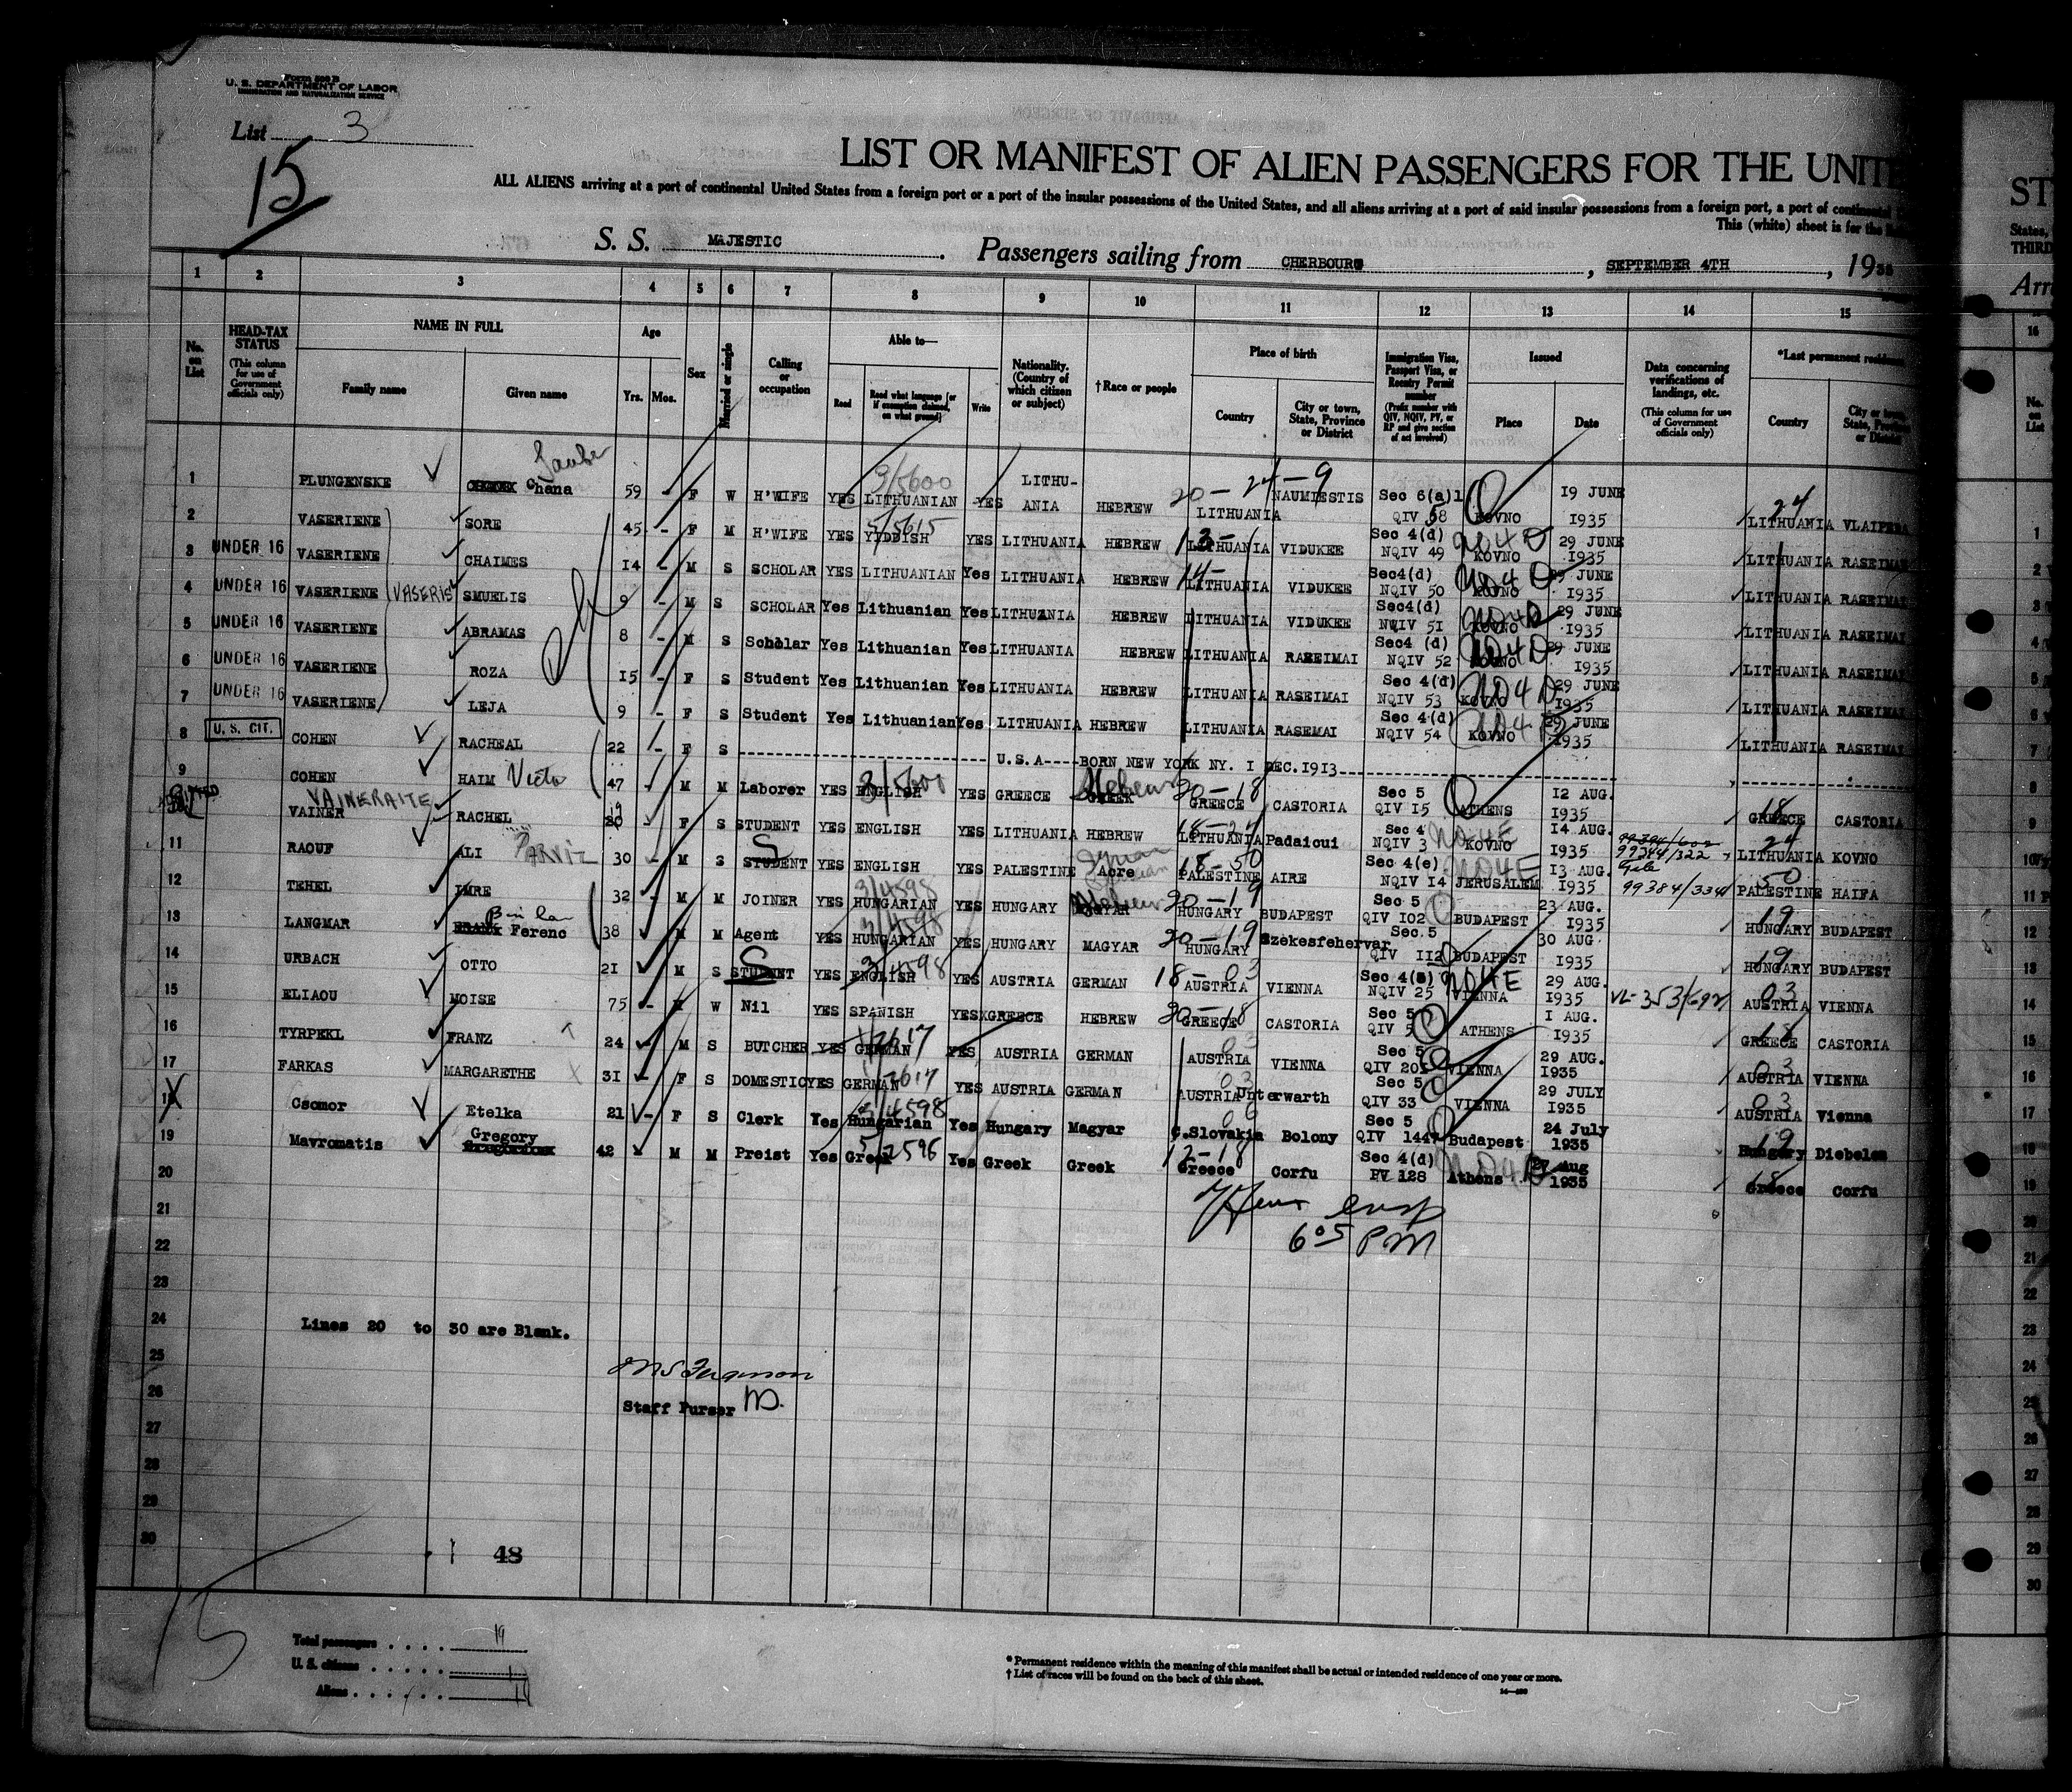 Form 500 B
U. S. DEPARTMENT OF LABOR
IMMIGRATION AND NATURALIZATION SERVICE
List 3
15
LIST OR MANIFEST OF ALIEN PASSENGERS FOR THE UNITE
ALL ALIENS arriving at a port of continental United States from a foreign port or a port of the insular possessions of the United States, and all aliens arriving at a port of said insular possessions from a foreign port, a port of continental
This (white) sheet is for the
S. S. MAJESTIC. Passengers sailing from CHERBOURG, SEPTEMBER 4TH, 1935
1 2 3 4 5 6 7 8 9 10 11 12 13 14 15
No. on List
HEAD-TAX STATUS (This column for use of Government officials only)
NAME IN FULL
Family name
Given name
Age
Yrs. Mos.
Sex
Married or single
Calling or occupation
Able to—
Read
Read what language [or if exemption claimed, on what ground]
Write
Nationality. (Country of which citizen or subject)
† Race or people
Place of birth
Country
City or town, State, Province or District
Immigration Visa, Passport Visa, or Reentry Permit number (Prefix number with QIV, NQIV, PV, or RP and give section of act involved)
Issued
Place
Date
Data concerning verifications of landings, etc. (This column for use of Government officials only)
*Last permanent residence
Country
City or town, State, Province or District
1 PLUNGENSKE Chana 59 - F W H'WIFE YES LITHUANIAN YES LITHU-ANIA HEBREW LITHUANIA NAUMIESTIS Sec 6(a)1 QIV 58 KOVNO 19 JUNE 1935 LITHUANIA
3/5600 20-24-9 24
2 VASERIENE SORE 45 - F M H'WIFE YES YIDDISH YES LITHUANIA HEBREW LITHUANIA VIDUKEE Sec 4(d) NQIV 49 KOVNO 29 JUNE 1935 LITHUANIA RASEIMAI
5/5615 NO4D
3 UNDER 16 VASERIENE CHAIMES 14 - M S SCHOLAR YES LITHUANIAN Yes LITHUANIA HEBREW LITHUANIA VIDUKEE Sec4(d) NQIV 50 KOVNO 29 JUNE 1935 LITHUANIA RASEIMAI
14- NO4D
4 UNDER 16 VASERIENE (VASERIS SMUELIS 9 - M S SCHOLAR Yes Lithuanian Yes LITHUANIA HEBREW LITHUANIA VIDUKEE Sec4(d) NQIV 51 KOVNO 29 JUNE 1935 LITHUANIA RASEIMAI
NO4D
5 UNDER 16 VASERIENE ABRAMAS 8 - M S Scholar Yes Lithuanian Yes LITHUANIA HEBREW LITHUANIA RASEIMAI Sec4 (d) NQIV 52 KOVNO 29 JUNE 1935 LITHUANIA RASEIMAI
NO4D
6 UNDER 16 VASERIENE ROZA 15 - F S Student Yes Lithuanian Yes LITHUANIA HEBREW LITHUANIA RASEIMAI Sec 4(d) NQIV 53 KOVNO 29 JUNE 1935 LITHUANIA RASEIMAI
NO4D
7 UNDER 16 VASERIENE LEJA 9 - F S Student Yes Lithuanian Yes LITHUANIA HEBREW LITHUANIA RASEMAI Sec 4(d) NQIV 54 KOVNO 29 JUNE 1935 LITHUANIA RASEIMAI
8 U. S. CIT. COHEN RACHEAL 22 - F S U.S.A----BORN NEW YORK NY. 1 DEC.1913
9 COHEN HAIM 47 M M Laborer YES ENGLISH YES GREECE GREEK GREECE CASTORIA Sec 5 QIV 15 ATHENS 12 AUG. 1935 GREECE CASTORIA
3/5600 Hebrew 20-18 18
VAINERAITE
VAINER RACHEL 20 F S STUDENT YES ENGLISH YES LITHUANIA HEBREW LITHUANIA Padaicui Sec 4 NQIV 3 KOVNO 14 AUG. 1935 LITHUANIA KOVNO
19 18-24 NO4E 99384/322 24
11 RAOUF ALI PARVIZ 30 - M S STUDENT YES ENGLISH YES PALESTINE Acre PALESTINE AIRE Sec 4(e) NQIV 14 JERUSALEM 13 AUG. 1935 PALESTINE HAIFA
S Syrian 18-50 NO4E 99384/334 50
12 TEHEL IMRE 32 M M JOINER YES HUNGARIAN YES HUNGARY MAGYAR HUNGARY BUDAPEST Sec 5 QIV 102 BUDAPEST 23 AUG. 1935 HUNGARY BUDAPEST
3/4598 Hebrew 20-19 19
13 LANGMAR Ferenc 38 M M Agent YES HUNGARIAN YES HUNGARY MAGYAR HUNGARY Szekesfehervar Sec.5 QIV 112 BUDAPEST 30 AUG. 1935 HUNGARY BUDAPEST
3/4598 20-19 19
14 URBACH OTTO 21 M S STUDENT YES ENGLISH YES AUSTRIA GERMAN AUSTRIA VIENNA NQIV 25 VIENNA 29 AUG. 1935 AUSTRIA VIENNA
S 3/4598 18-03 NO4E VL-353/692 03
15 ELIAOU MOISE 75 - M W Nil YES SPANISH YES GREECE HEBREW GREECE CASTORIA Sec 5 QIV 5 ATHENS 1 AUG. 1935 GREECE CASTORIA
20-18 18
16 TYRPEKL FRANZ 24 M S BUTCHER YES GERMAN YES AUSTRIA GERMAN AUSTRIA VIENNA Sec 5 QIV 201 VIENNA 29 AUG. 1935 AUSTRIA VIENNA
2617 03 03
17 FARKAS MARGARETHE 31 F S DOMESTIC YES GERMAN YES AUSTRIA GERMAN AUSTRIA Unterwarth Sec 5 QIV 33 VIENNA 29 JULY 1935 AUSTRIA Vienna
2617 03 03
18 Csomor Etelka 21 - F S Clerk Yes Hungarian Yes Hungary Magyar C.Slovakia Bolony Sec 5 QIV 1447 Budapest 24 July 1935 Hungary Diebelen
4598 19
19 Mavromatis Gregory 42 M M Preist Yes Greek Yes Greek Greek Greece Corfu Sec 4(d) PV 128 Athens 27 Aug 1935 Greece Corfu
5/2596 12-18 NO4D 18
20
21
6 05 PM
22
23
24
Lines 20 to 30 are Blank.
25
26
Staff Purser
27
28
29
30
48
15
Total passengers . . . . 19
U. S. citizens . . . . . 1
Aliens . . . . . . 18
* Permanent residence within the meaning of this manifest shall be actual or intended residence of one year or more.
† List of races will be found on the back of this sheet.
ST
States,
THIRD
Arri
16
No. on List
1
2
3
4
5
6
7
8
9
10
11
12
13
14
15
16
17
18
19
20
21
22
23
24
25
26
27
28
29
30